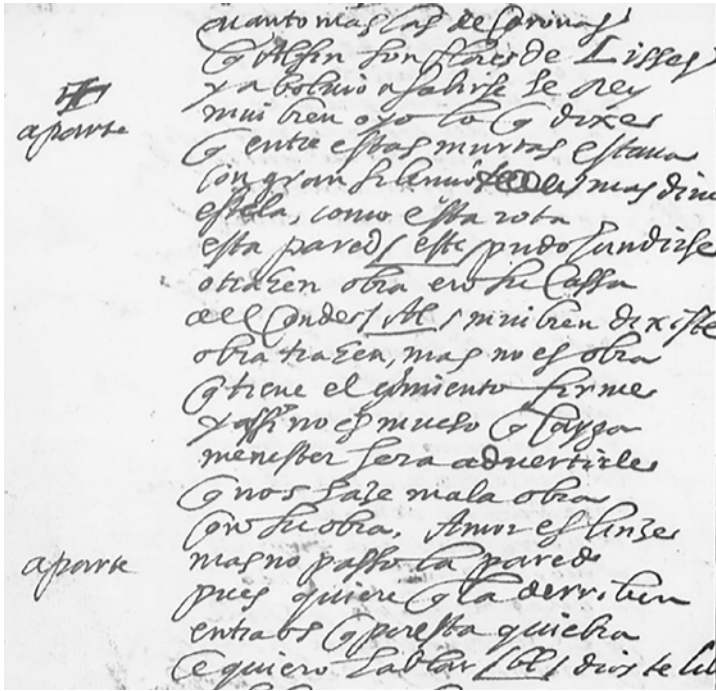 quanto mas las de coronas
q al fin son flores de Lisses
ya bolvio a salirse le rey
aparte
mui bien oyo lo q dixe
q entre estas murtas estava
con gran silencio mas dime
estela, como esta rota
esta pared este pudo hundirse
o trazen obra en su cassa
del Conde mui bien dixiste
obra trazen, mas no es obra
q tiene el çimiento firme
y assi no es mucho q cayga
menester sera advertirle
q nos haze mala obra
su obra, Amor es linze
aparte
mas no passo la pared
pues quiere q la derriben
q por esta quiebra
te quiero hablar dios te